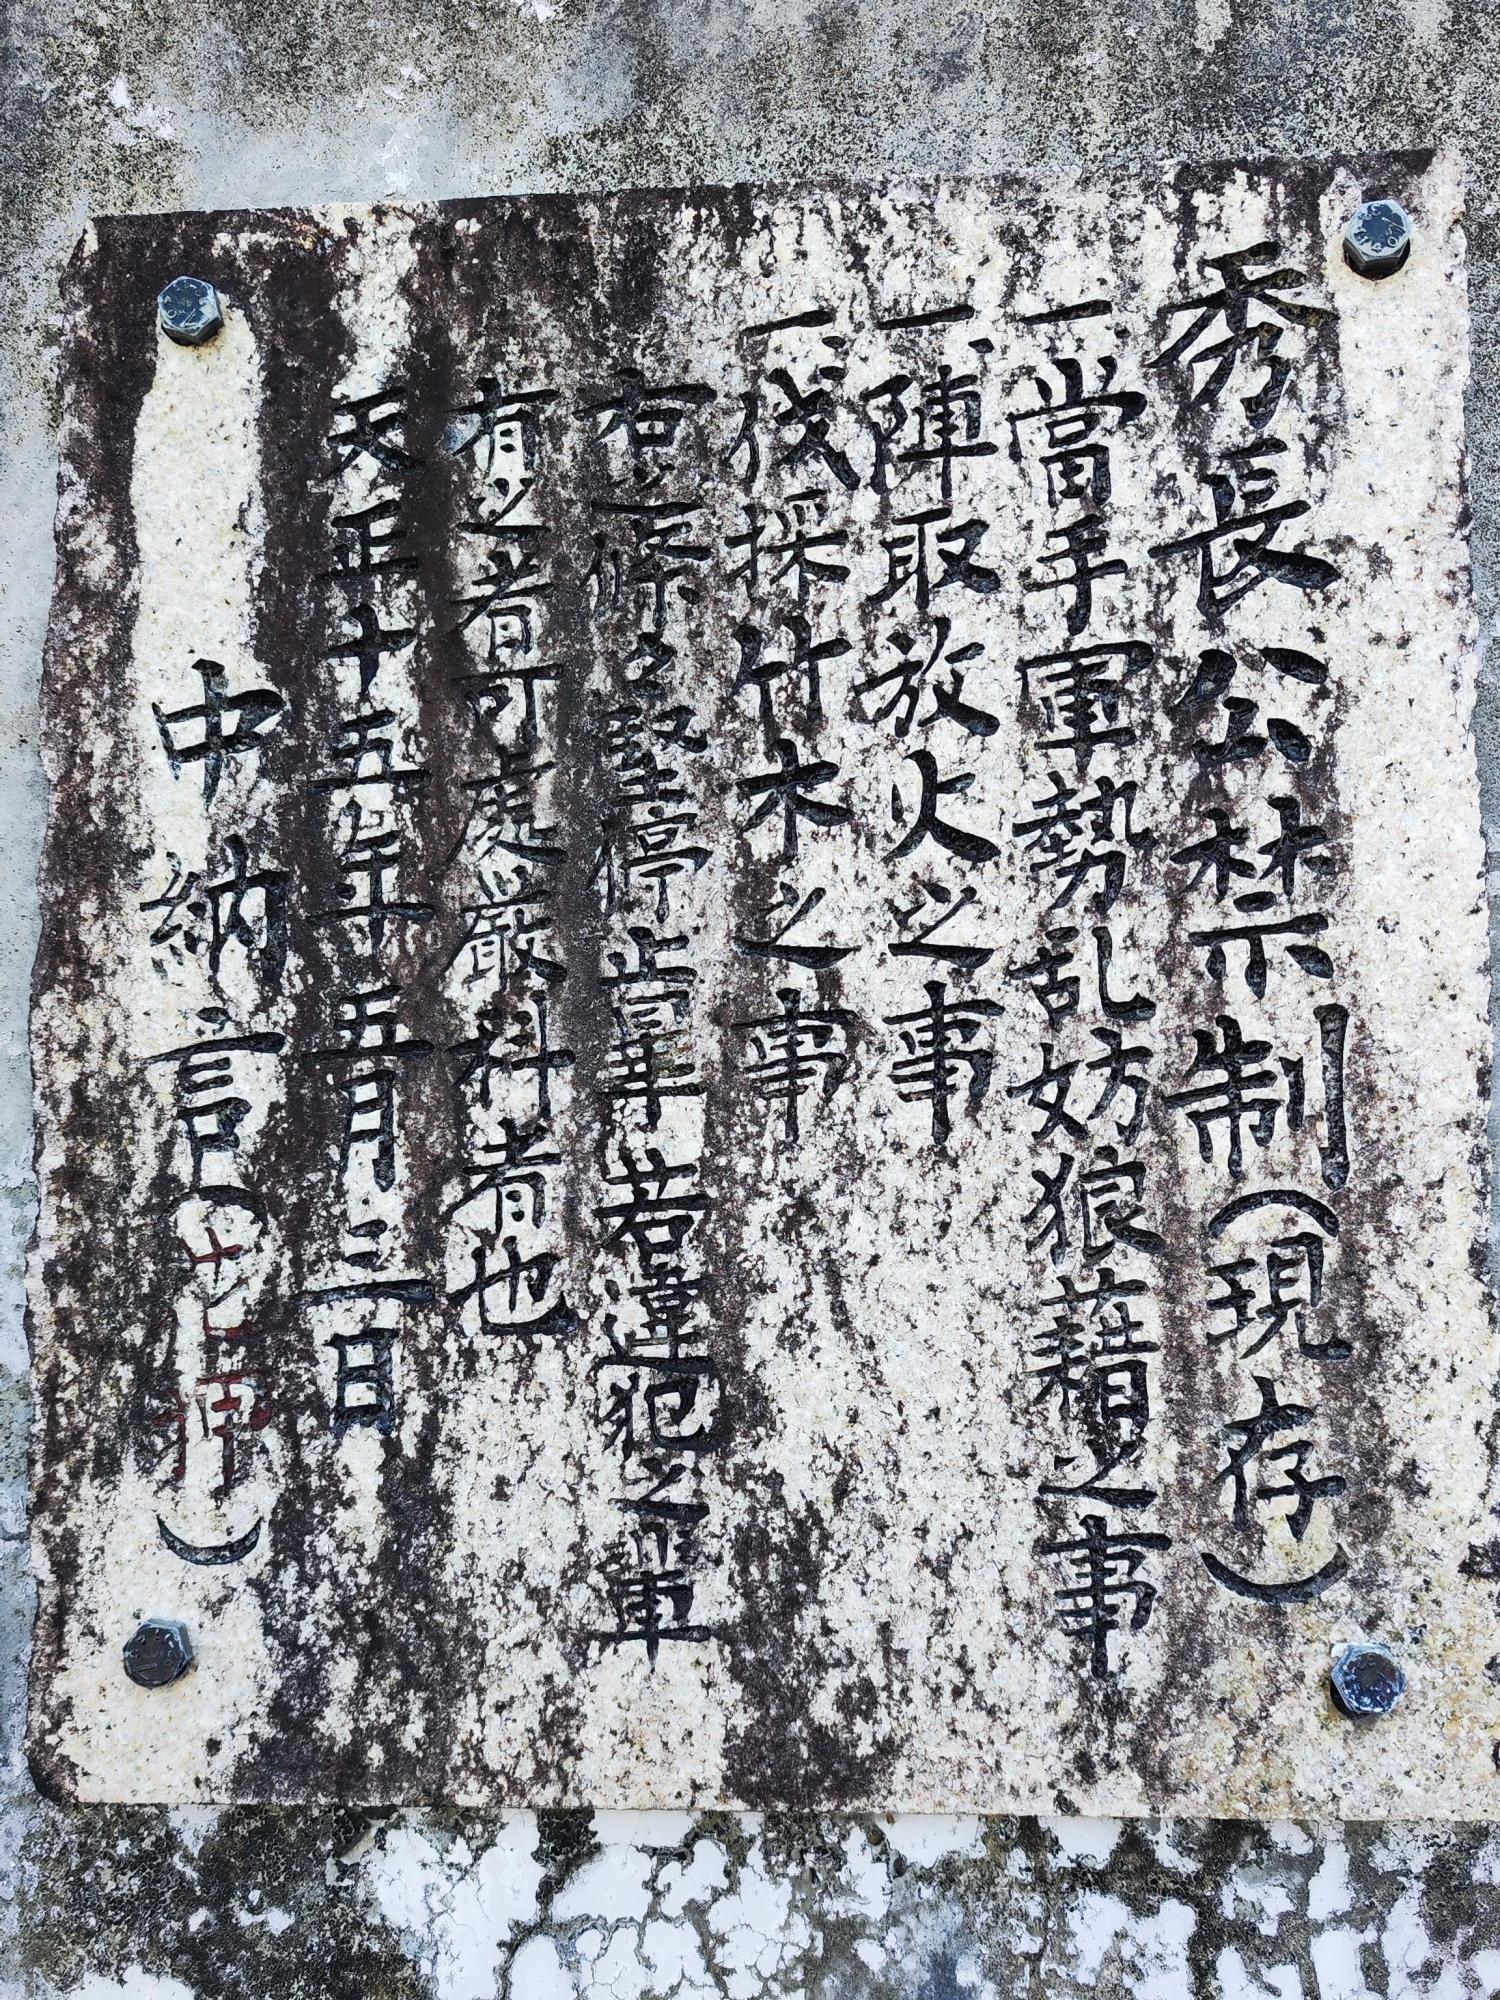 秀長公禁制(現存)
一、當手軍勢乱妨狼藉之事
一、陣取放火之事
一、伐採竹木之事
右条々堅停止畢若違犯之輩
有之者可處嚴科者也
天正十五年五月三日
中納言(花押)